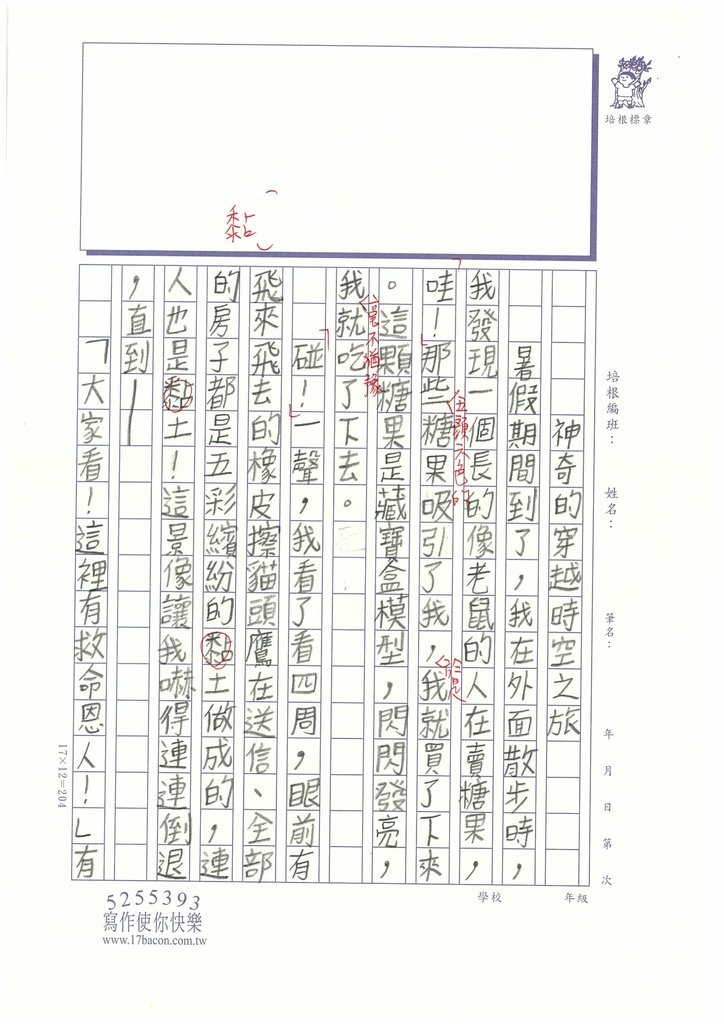 培根標章
黏
培根編班：
姓名：
筆名：
年 月 日 第 次
學校
年級
神奇的穿越時空之旅
暑假期間到了，我在外面散步時，
我發現一個長的像老鼠的人在賣糖果，
「哇！」那些五顏六色的糖果吸引了我，於是我就買了下來
。這顆糖果是藏寶盒模型，閃閃發亮，
我毫不猶豫就吃了下去。
「碰！」一聲，我看了看四周，眼前有
飛來飛去的橡皮擦貓頭鷹在送信、全部
的房子都是五彩繽紛的黏土做成的，連
人也是黏土！這景像讓我嚇得連連倒退
，直到——
「大家看！這裡有救命恩人！」有
17×12=204
5255393
寫作使你快樂
www.17bacon.com.tw